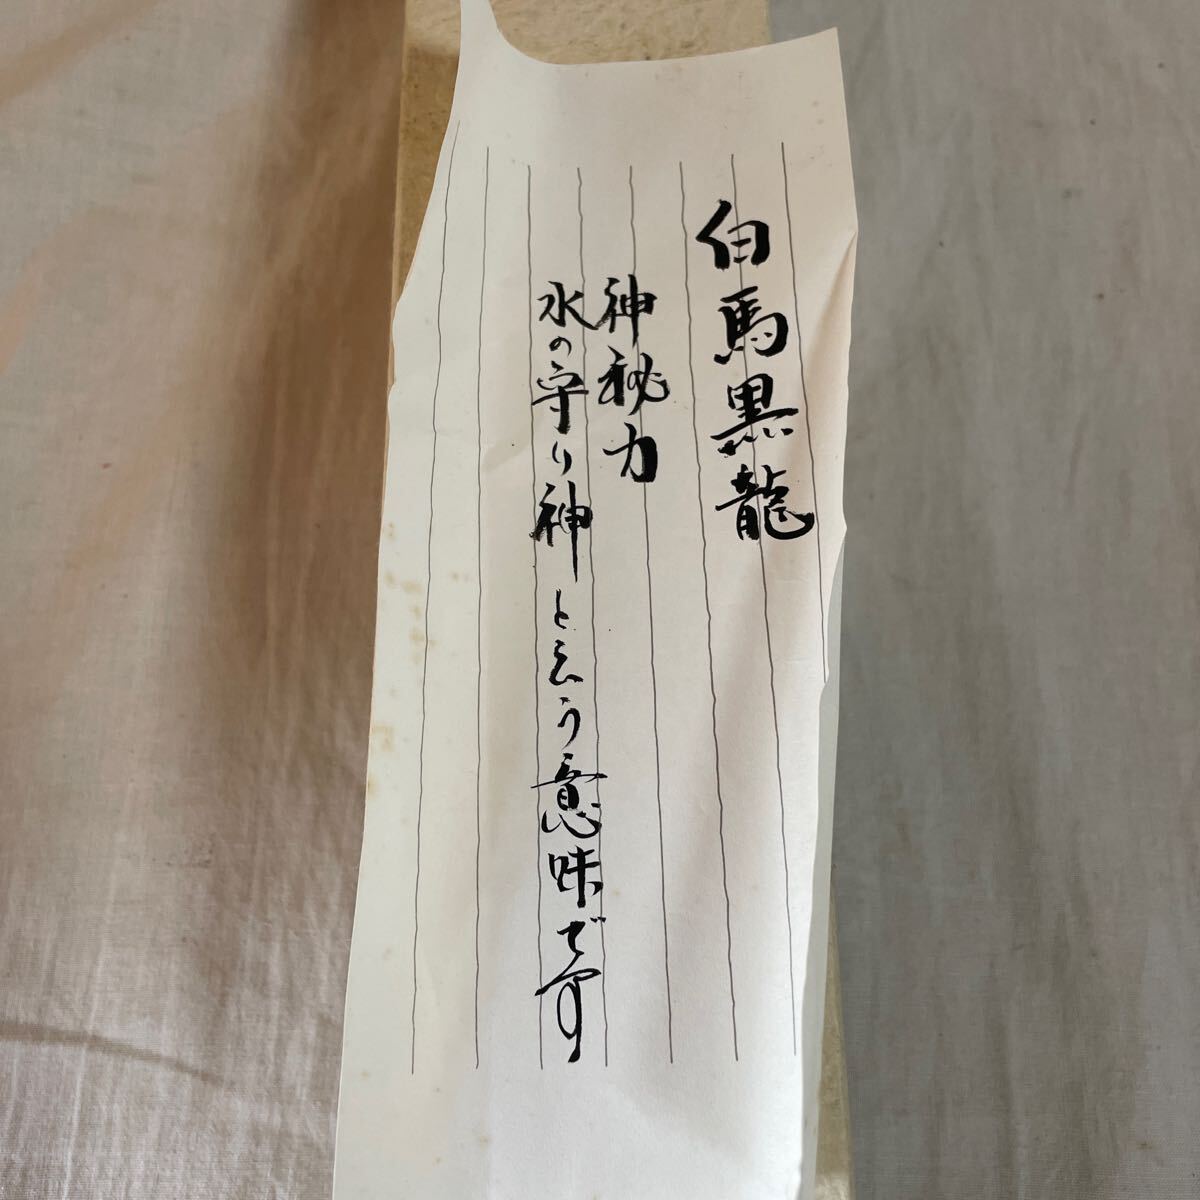 白馬黒龍
神秘力
水の守り神と云う意味です